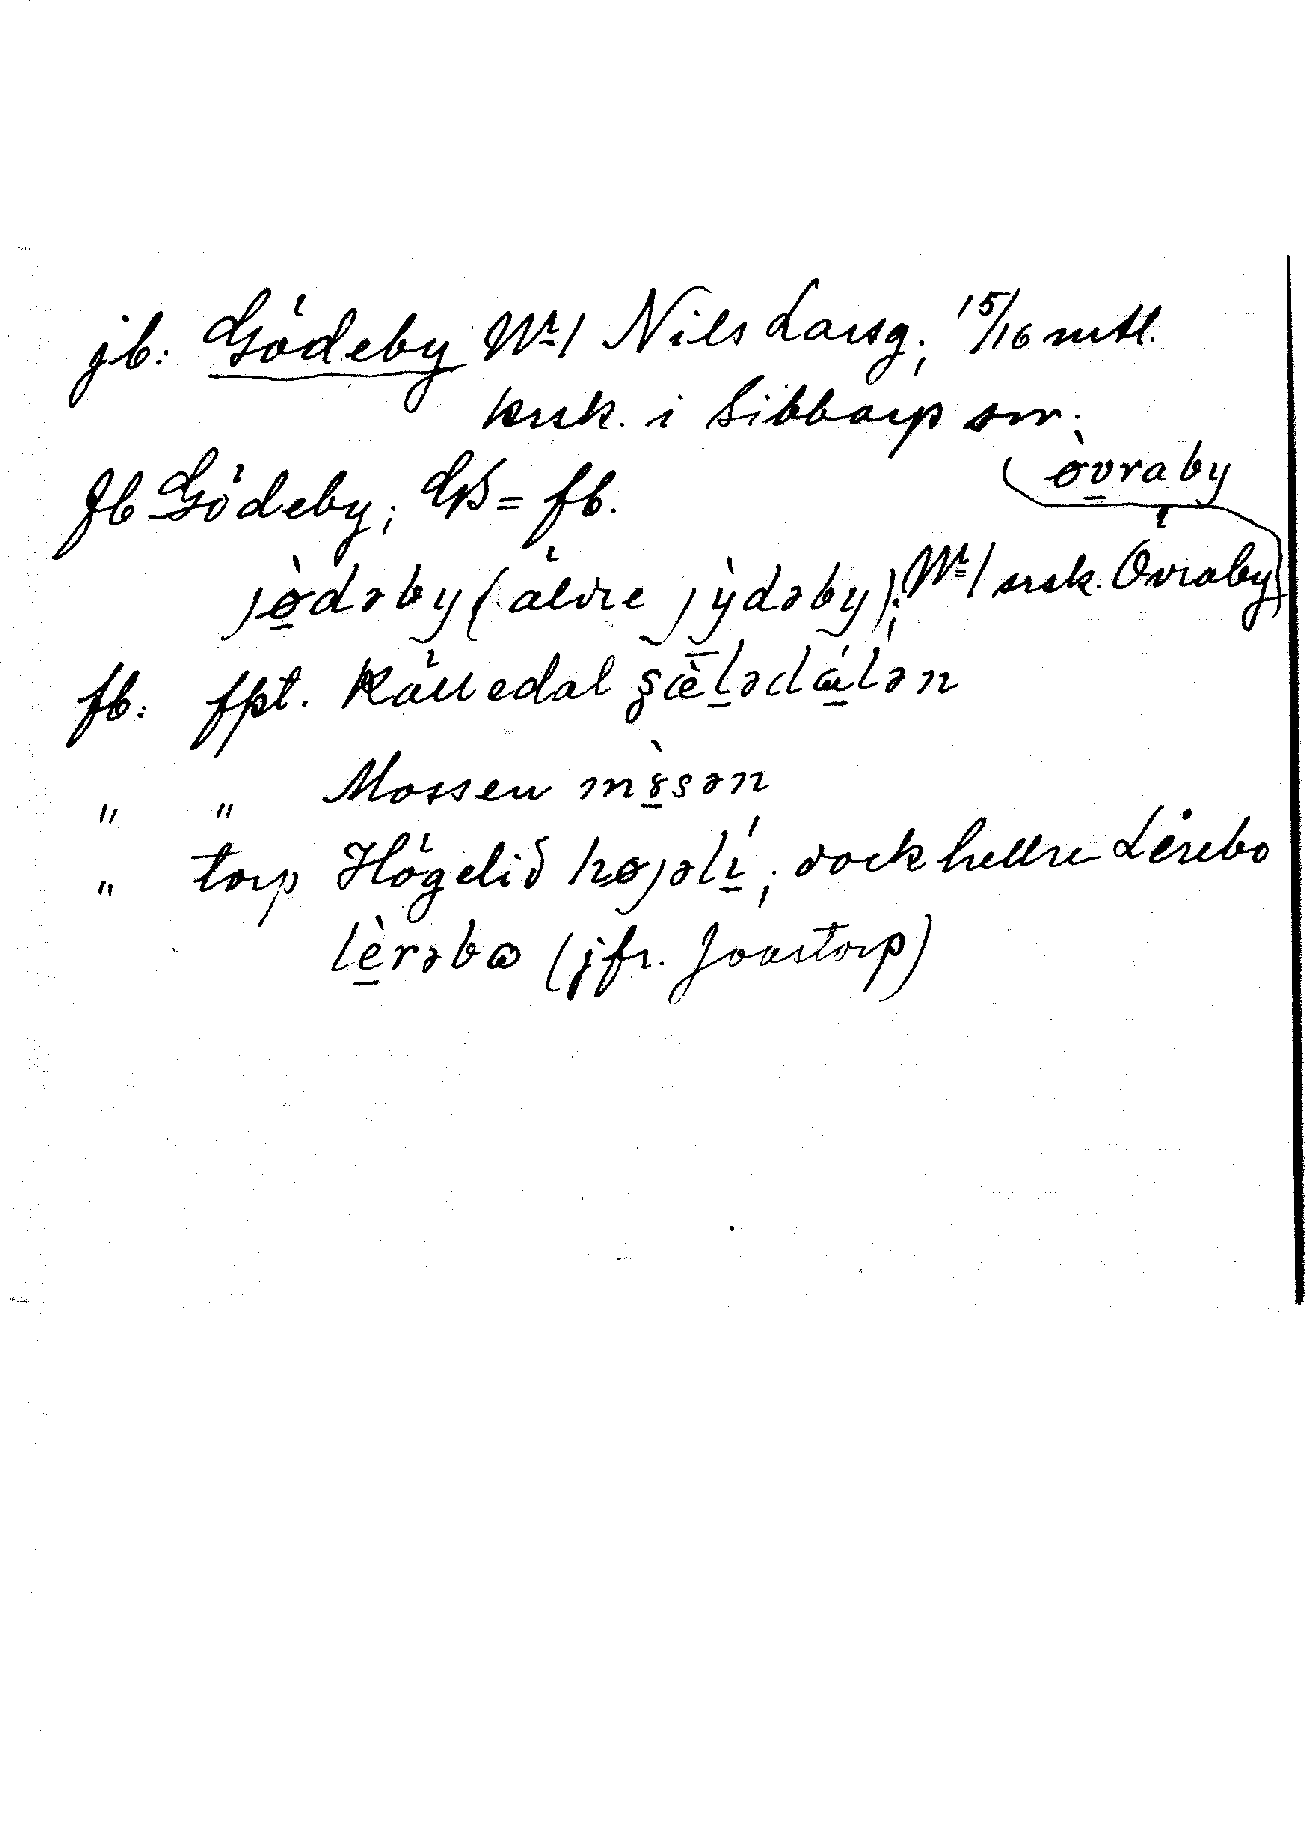 jb: Gödeby Nr 1 Nils Larsg.; 15/16 mtl.
krsk. i Sibbarp sn.
fb Gödeby; GB = fb.
(ø̀vraby
jø̀dəby (äldre jỳdəby); Nr 1 srsk. Övraby)
fb: fpt. Källedal dálən
" " Mossen sən
" torp Högelid højəlí; dock hellre Lerebo
lèrəbɷ (jfr. Joastorp)